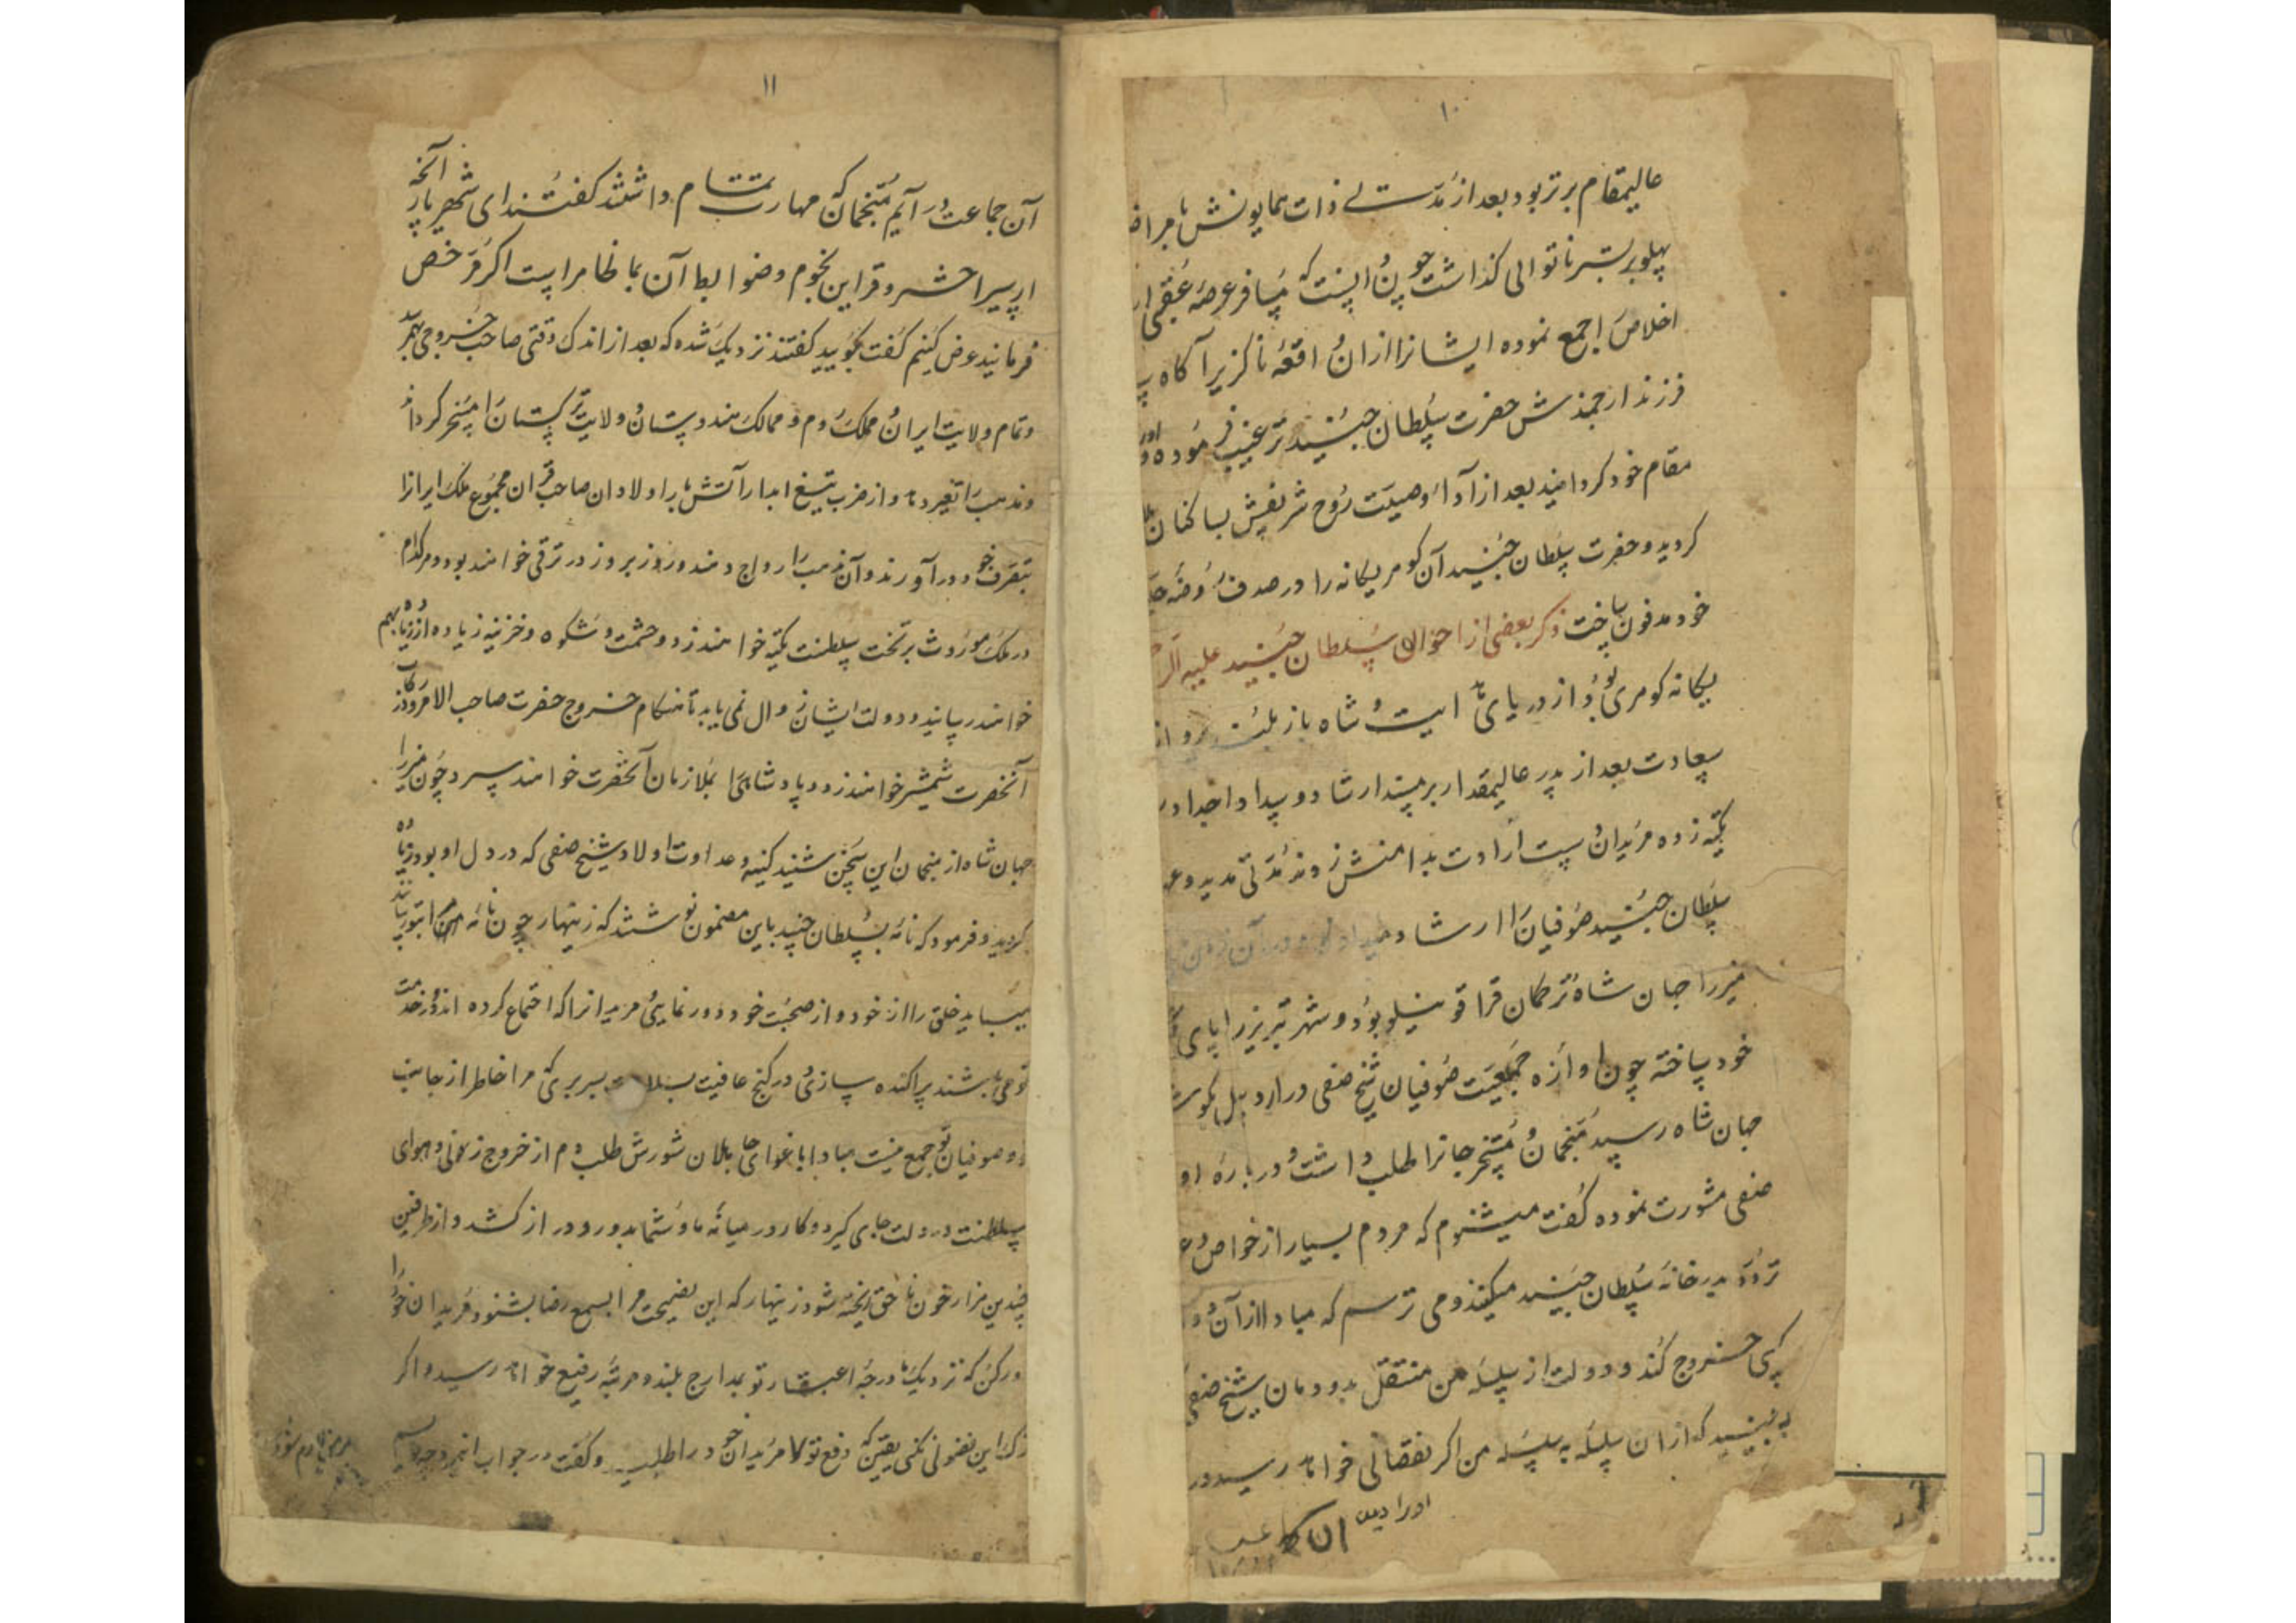 ۱۰
عالیمقام برتر بود بعد از مدتی ذات همایونش با مراض
پهلو بر بستر ناتوانی گذاشت چون دانست که مسافر عرصه عقبی
اخلاص را جمع نموده ایشانرا از ان واقعه ناگزیر آگاه
فرزند ارجمندش حضرت سلطان جنید ترغیب فرموده و او را
مقام خود گردانید بعد از آداء وصیت روح شریفش بساکنان
گردید و حضرت سلطان جنید آن گوهر یگانه را در صدف روضه
خود مدفون ساخت ذکر بعضی از احوال سلطان جنید علیه
یگانه گوهری بود از دریای هدایت و شاه باز بلند پرواز
سعادت بعد از پدر عالیمقدار بر مسند ارشاد و پدر و اجداد
تکیه زده مریدان دست ارادت بدامنش زدند مدتی مدید و
سلطان جنید صوفیان را ارشاد میداد و در آن زمن
میرزا جهان شاه ترکمان قرا قوینیلو بود و شهر تبریز را پای
خود ساخته چون اوازه جمعیت صوفیان شیخ صفی در اردبیل بگوش
جهان شاه رسید منجمان و مستخرجانرا طلب داشت و در باره او
صفی مشورت نموده گفت میشنوم که مردم بسیار از خواص و
تردد بدر خانه سلطان جنید میکنند و می ترسم که مبادا از آن
کسی خروج کند و دولت از سلسله من منتقل بدودمان شیخ صفی
به بینید که از ان سلسله به سلسله من اگر نقصانی خواهد رسید در
۱۱
آن جماعت در آیم منجمان که مهارت تمام داشتند گفتند ای شهریار آنچه
از سیر اختر و قراین نجوم و ضوابط آن بما ظاهر است اگر مرخص
فرمایند عرض کنیم گفت بگویید گفتند نزدیک شده که بعد از اندک وقتی صاحب خروجی بهم
و تمام ولایت ایران و مملک روم و ممالک هندوستان و ولایت ترکستان را مسخر گرداند
و مذهب را تغیر دهد و از ضرب تیغ ابدار آتش بار اولاد ان صاحب قران مجموع ملک ایرانرا
بتصرف خود در آورند و آن مذهب را رواج دهند و روز بروز در ترقی خواهند بود و هر کدام
در ملک موروث بر تخت سلطنت تکیه خواهند زد و حشمت و شکوه و خزینه زیاده از زیاده بهم
خواهند رسانید و دولت ایشان زوال نمی یابد تا هنگام خروج حضرت صاحب الامر و در رکاب
آنحضرت شمشیر خواهند زد و پادشاهی را بملازمان آنحضرت خواهند سپرد چون میرزا
جهان شاه از منجمان این سخن شنید کینه و عداوت اولاد شیخ صفی که در دل او بود زیاده
گردید و فرمود که نامه بسلطان جنید باین مضمون نوشتند که زینهار چون نامه من بتو رسد
میباید خلق را از خود و از صحبت خود دور نمایی و مریدانرا که اجتماع کرده اند و در خدمت
تو می باشند پراکنده سازی و در کنج عافیت بسلامت بسر بری که مرا خاطر از جانب
تو و صوفیان تو جمع نیست مبادا باغوای جاهلان شورش طلب دم از خروج زنی و هوای
سلطنت در دلت جای گیرد و کار در میانه ما و شما بدور و دراز کشد و از طرفین
چندین هزار خون ناحق ریخته شود زینهار که این نصیحت مرا بسمع رضا بشنو و مریدان خود را
ور کن که نزدیک ما درجه اعتبار تو بمدارج بلند و مرتبه رفیع خواهد رسید و اگر
ترک این فضولی نکنی یقین که دفع تو مریدان خود را طلبید و گفت در جواب